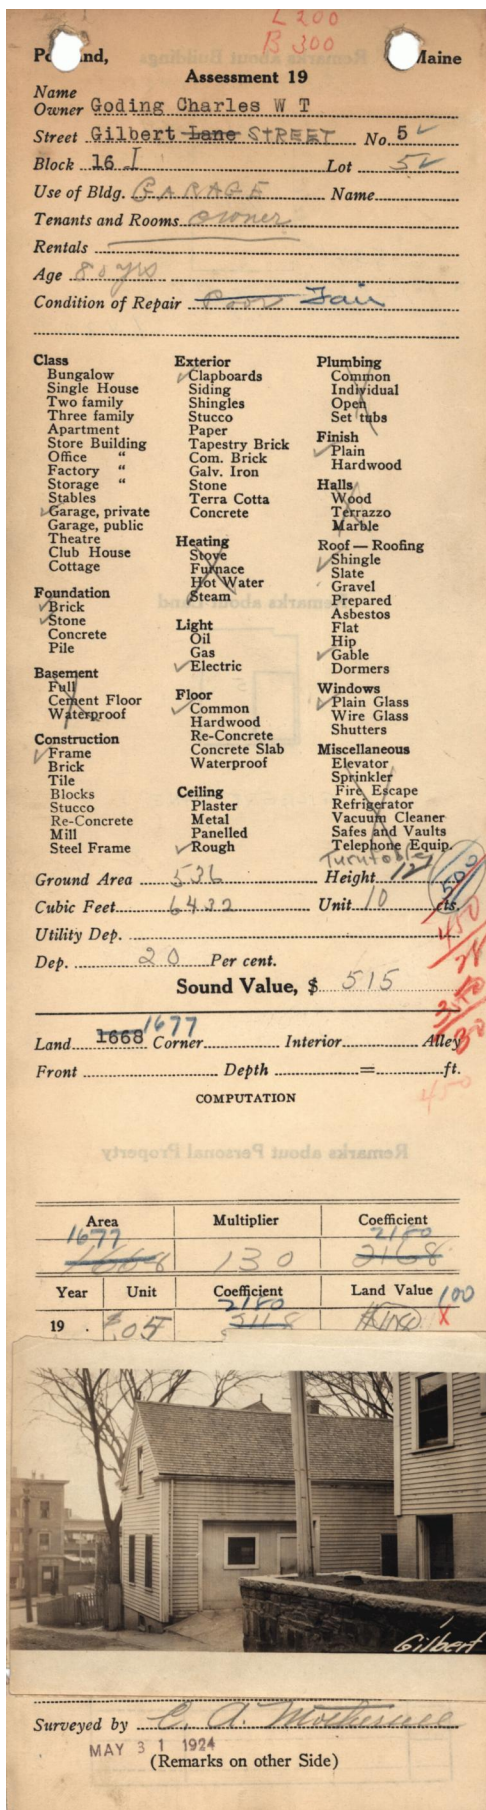 L 200
B 300
Portland, Maine
Assessment 19
Name
Owner Goding Charles W T
Street Gilbert Lane STREET No. 5
Block 16 I Lot 5
Use of Bldg. GARAGE Name
Tenants and Rooms owner
Rentals
Age 80 yrs
Condition of Repair Poor Fair
Class
Bungalow
Single House
Two family
Three family
Apartment
Store Building
Office "
Factory "
Storage "
Stables
Garage, private
Garage, public
Theatre
Club House
Cottage
Foundation
Brick
Stone
Concrete
Pile
Basement
Full
Cement Floor
Waterproof
Construction
Frame
Brick
Tile
Blocks
Stucco
Re-Concrete
Mill
Steel Frame
Exterior
Clapboards
Siding
Shingles
Stucco
Paper
Tapestry Brick
Com. Brick
Galv. Iron
Stone
Terra Cotta
Concrete
Heating
Stove
Furnace
Hot Water
Steam
Light
Oil
Gas
Electric
Floor
Common
Hardwood
Re-Concrete
Concrete Slab
Waterproof
Ceiling
Plaster
Metal
Panelled
Rough
Plumbing
Common
Individual
Open
Set tubs
Finish
Plain
Hardwood
Halls
Wood
Terrazzo
Marble
Roof — Roofing
Shingle
Slate
Gravel
Prepared
Asbestos
Flat
Hip
Gable
Dormers
Windows
Plain Glass
Wire Glass
Shutters
Miscellaneous
Elevator
Sprinkler
Fire Escape
Refrigerator
Vacuum Cleaner
Safes and Vaults
Telephone Equip.
Turntable
Ground Area 536 Height 12
Cubic Feet 6432 Unit 10 cts.
Utility Dep.
450
Dep. 20 Per cent.
Sound Value, $ 515
1677
Land 1668 Corner Interior Alley
Front Depth = ft.
450
COMPUTATION
Remarks about Personal Property
Area Multiplier Coefficient
1677 2180
1668 130 2168
Year Unit Coefficient Land Value 100
2180
19 . .05 2168 X
Gilbert
Surveyed by C. A.
MAY 31 1924
(Remarks on other Side)